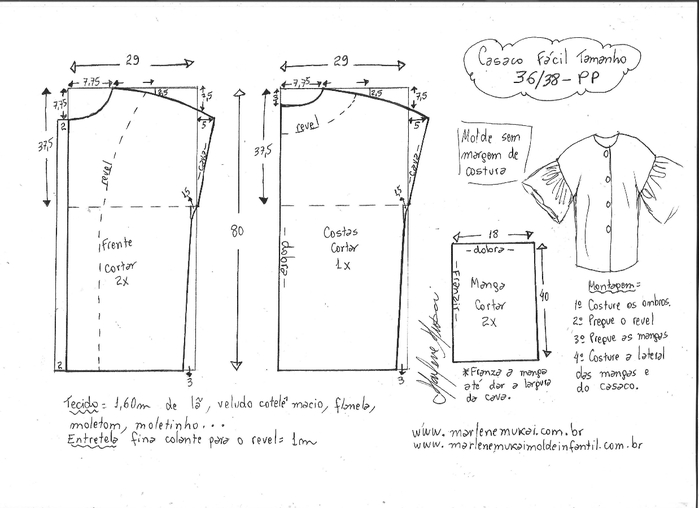 Casaco Fácil Tamanho
36/38 - PP
Molde sem
margem de
costura
29
7,75
2,5
7,5
7,75
2
5
37,5
cava
revel
1,5
Frente
Cortar
2x
2
3
80
29
7,75
2,5
7,5
5
37,5
revel
cava
1,5
Costas
Cortar
1x
- dobra -
3
18
- dobra -
- Franzir -
Manga
Cortar
2x
40
*Franza a manga
até dar a largura
da cava.
Marlene Mukai
Montagem=
1º Costure os ombros.
2º Pregue o revel
3º Pregue as mangas
4º Costure a lateral
das mangas e
do casaco.
Tecido= 1,60m de lã, veludo cotelê macio, flanela,
moletom, moletinho...
Entretela fina colante para o revel= 1m
www.marlenemukai.com.br
www.marlenemukaimoldeinfantil.com.br